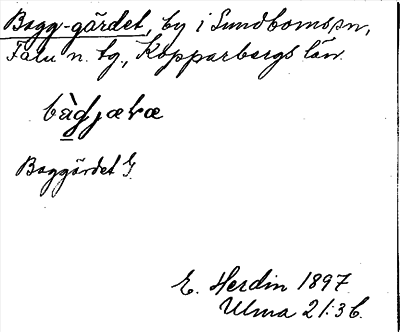 Bagg-gärdet, by i Sundbornssn,
Falu n. tg., Kopparbergs län.
Baggärdet G
E. Herdin 1897
Ulma 21:36.